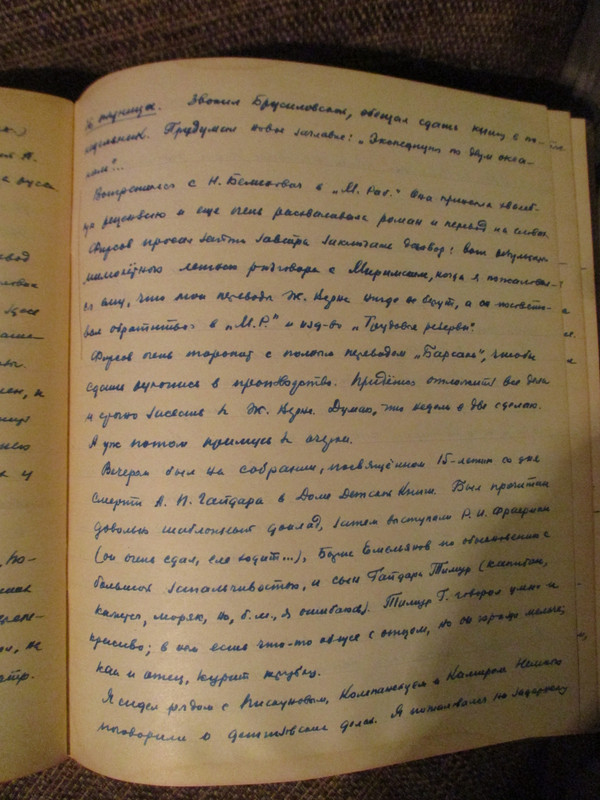 пятница. Звонил Брусиловский, обещал сдать книгу в по-
недельник. Придумали новое заглавие: „Экспедиция по двум океа-
нам"...
Встретился с Н. в „М. Раб." Она принесла
рецензию и еще очень расхваливала роман и перевод на словах.
Фирсов просил зайти завтра договор: вот
разговора с когда я пожаловал-
ся ему, что мои переводы Ж. Верна нигде не идут, а он посовето-
вал обратиться в „М. Р." и изд-во „Трудовые резервы".
Фирсов очень торопит с полным переводом „Барсака", чтобы
сдать рукопись в производство. Придётся отложить все дела
и срочно засесть за Ж. Верна. Думаю, что недели в две сделаю.
А уж потом примусь за очерки.
Вечером был на собрании, посвящённом 15-летию со дня
смерти А. П. Гайдара в Доме Детской Книги. Был прочитан
довольно шаблонный доклад, затем выступали Р. И. Фраерман
(он очень сдал, еле ходит...), Борис Емельянов по обыкновению с
большой запальчивостью, и сын Гайдара Тимур (капитан,
кажется, моряк, но, б. м., я ошибаюсь). Тимур Г. говорил умно и
красиво; в нем есть что-то общее с отцом, но он гораздо мельче;
как и отец, курит трубку.
Я сидел рядом с Пискуновым, Компанейцем и Калмой. Немного
поговорили о детгизовских делах. Я пожаловался на задержку